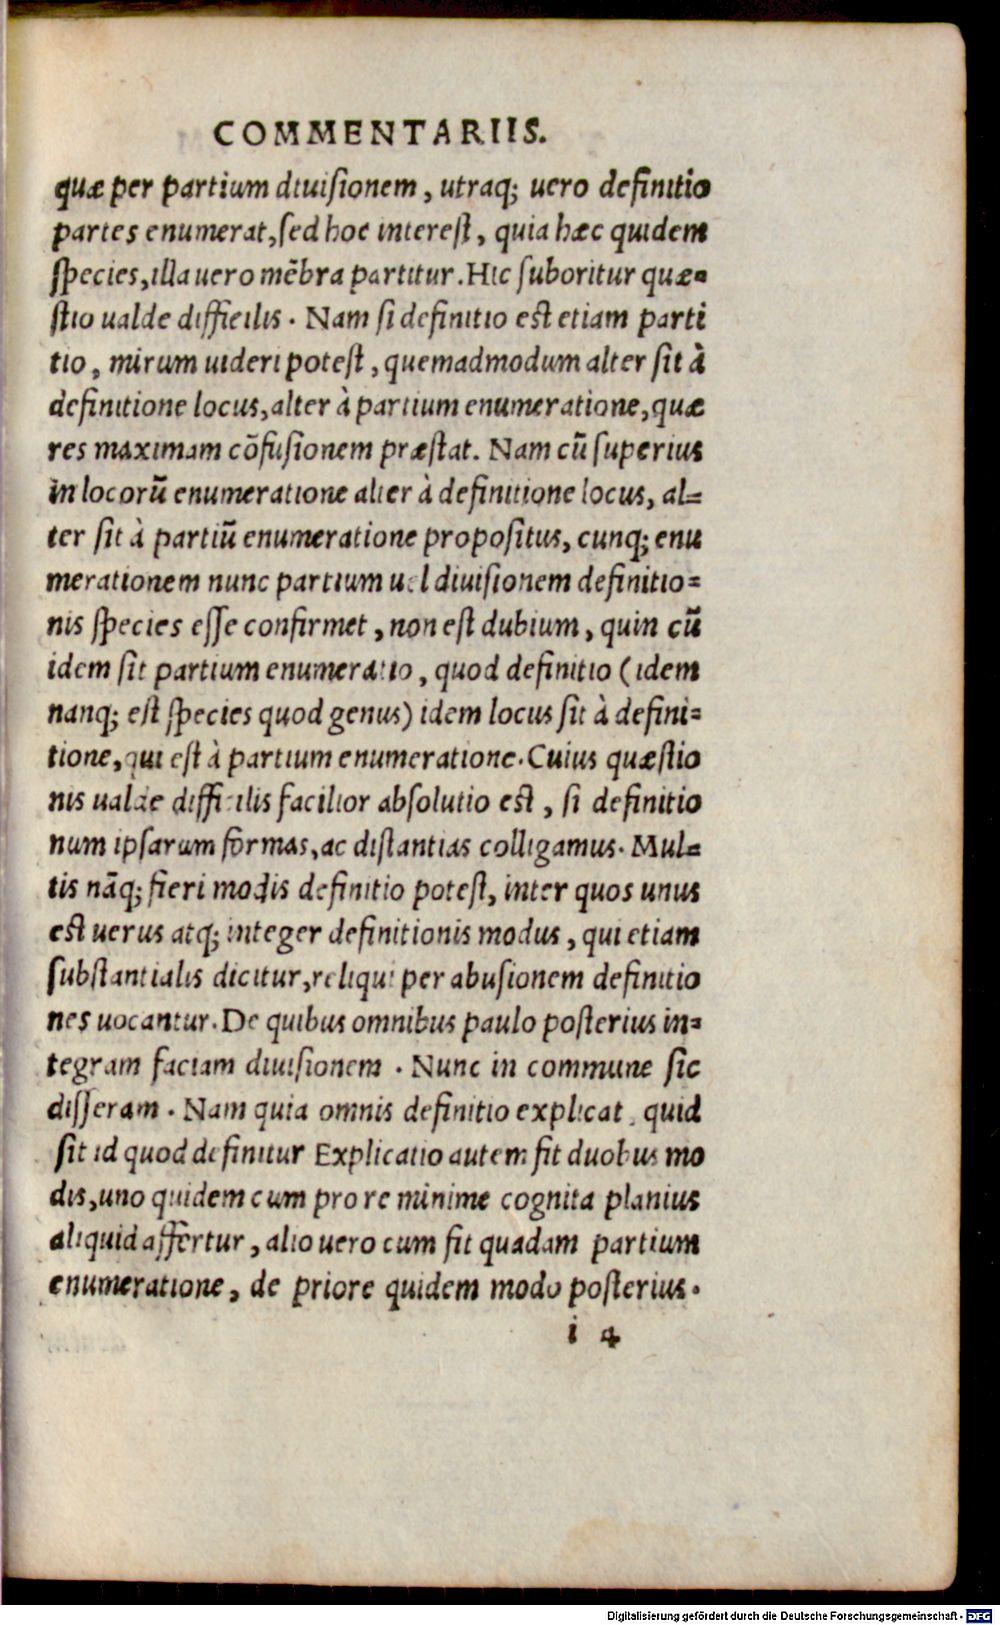 COMMENTARIIS.
quæ per partium diuisionem, utraq; uero definitio
partes enumerat, sed hoc interest, quia hæc quidem
species, illa uero mẽbra partitur. Hic suboritur quæ=
stio ualde difficilis. Nam si definitio est etiam parti
tio, mirum uideri potest, quemadmodum alter sit à
definitione locus, alter à partium enumeratione, quæ
res maximam cõfusionem præstat. Nam cũ superius
in locorũ enumeratione alter à definitione locus, al=
ter sit à partiũ enumeratione propositus, cunq; enu
merationem nunc partium uel diuisionem definitio=
nis species esse confirmet, non est dubium, quin cũ
idem sit partium enumeratio, quod definitio (idem
nanq; est species quod genus) idem locus sit à defini=
tione, qui est à partium enumeratione. Cuius quæstio
nis ualde difficilis facilior absolutio est, si definitio
num ipsarum formas, ac distantias colligamus. Mul=
tis nãq; fieri modis definitio potest, inter quos unus
est uerus atq; integer definitionis modus, qui etiam
substantialis dicitur, reliqui per abusionem definitio
nes uocantur. De quibus omnibus paulo posterius in=
tegram faciam diuisionem. Nunc in commune sic
disseram. Nam quia omnis definitio explicat, quid
sit id quod definitur Explicatio autem fit duobus mo
dis, uno quidem cum pro re minime cognita planius
aliquid affertur, alio uero cum fit quadam partium
enumeratione, de priore quidem modo posterius.
i 4
Digitalisierung gefördert durch die Deutsche Forschungsgemeinschaft - DFG